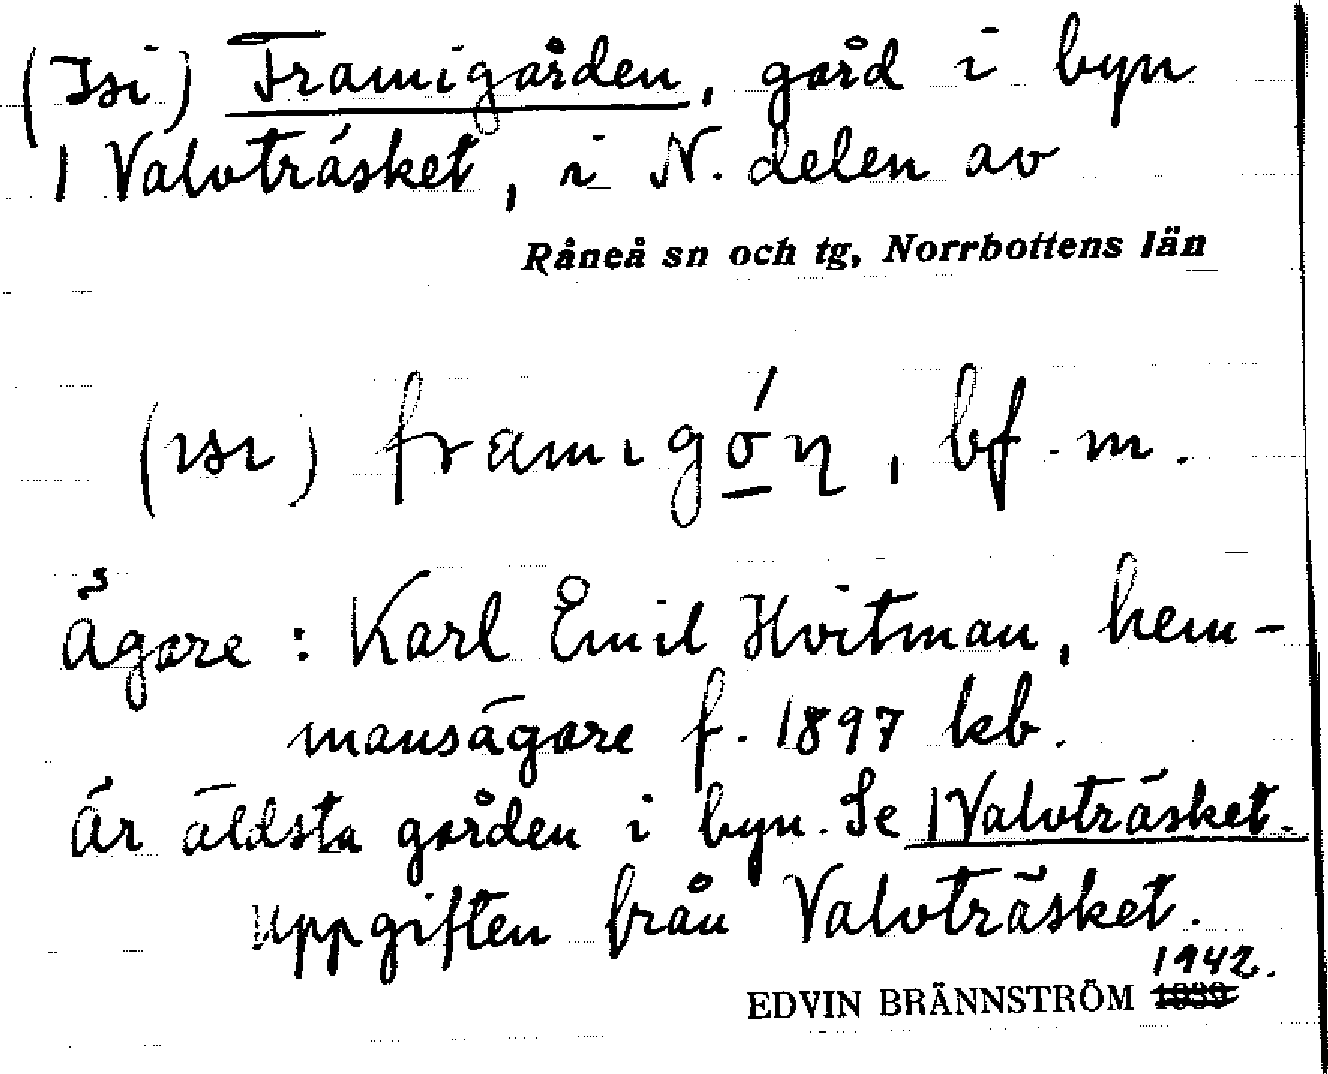 (Isi) Framigården, gård i byn
1 Valvträsket, i N. delen av
Råneå sn och tg, Norrbottens län
(ısı) framıgǫ́ṇ, bf. m.
Ägare: Karl Emil Hvitman, hem-
mansägare f. 1897 kb.
Är äldsta gården i byn. Se 1 Valvträsket.
Uppgiften från Valvträsket.
1942.
EDVIN BRÄNNSTRÖM 1939